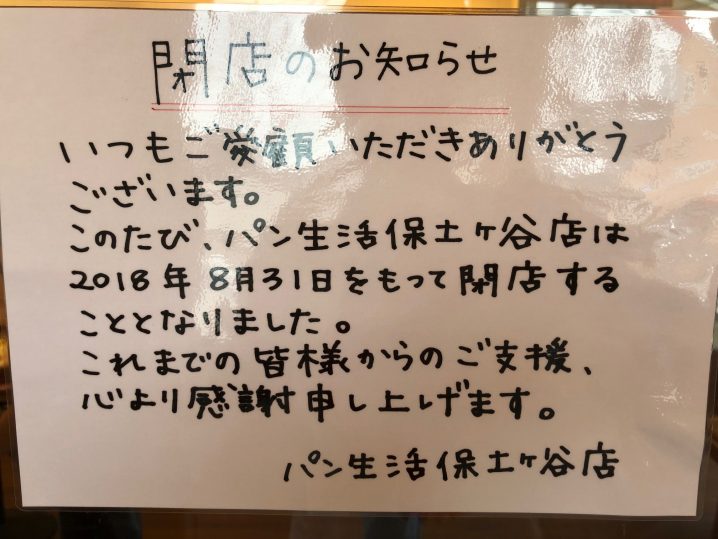 閉店のお知らせ
いつもご愛顧いただきありがとう
ございます。
このたび、パン生活保土ヶ谷店は
2018年8月31日をもって閉店する
こととなりました。
これまでの皆様からのご支援、
心より感謝申し上げます。
パン生活保土ヶ谷店